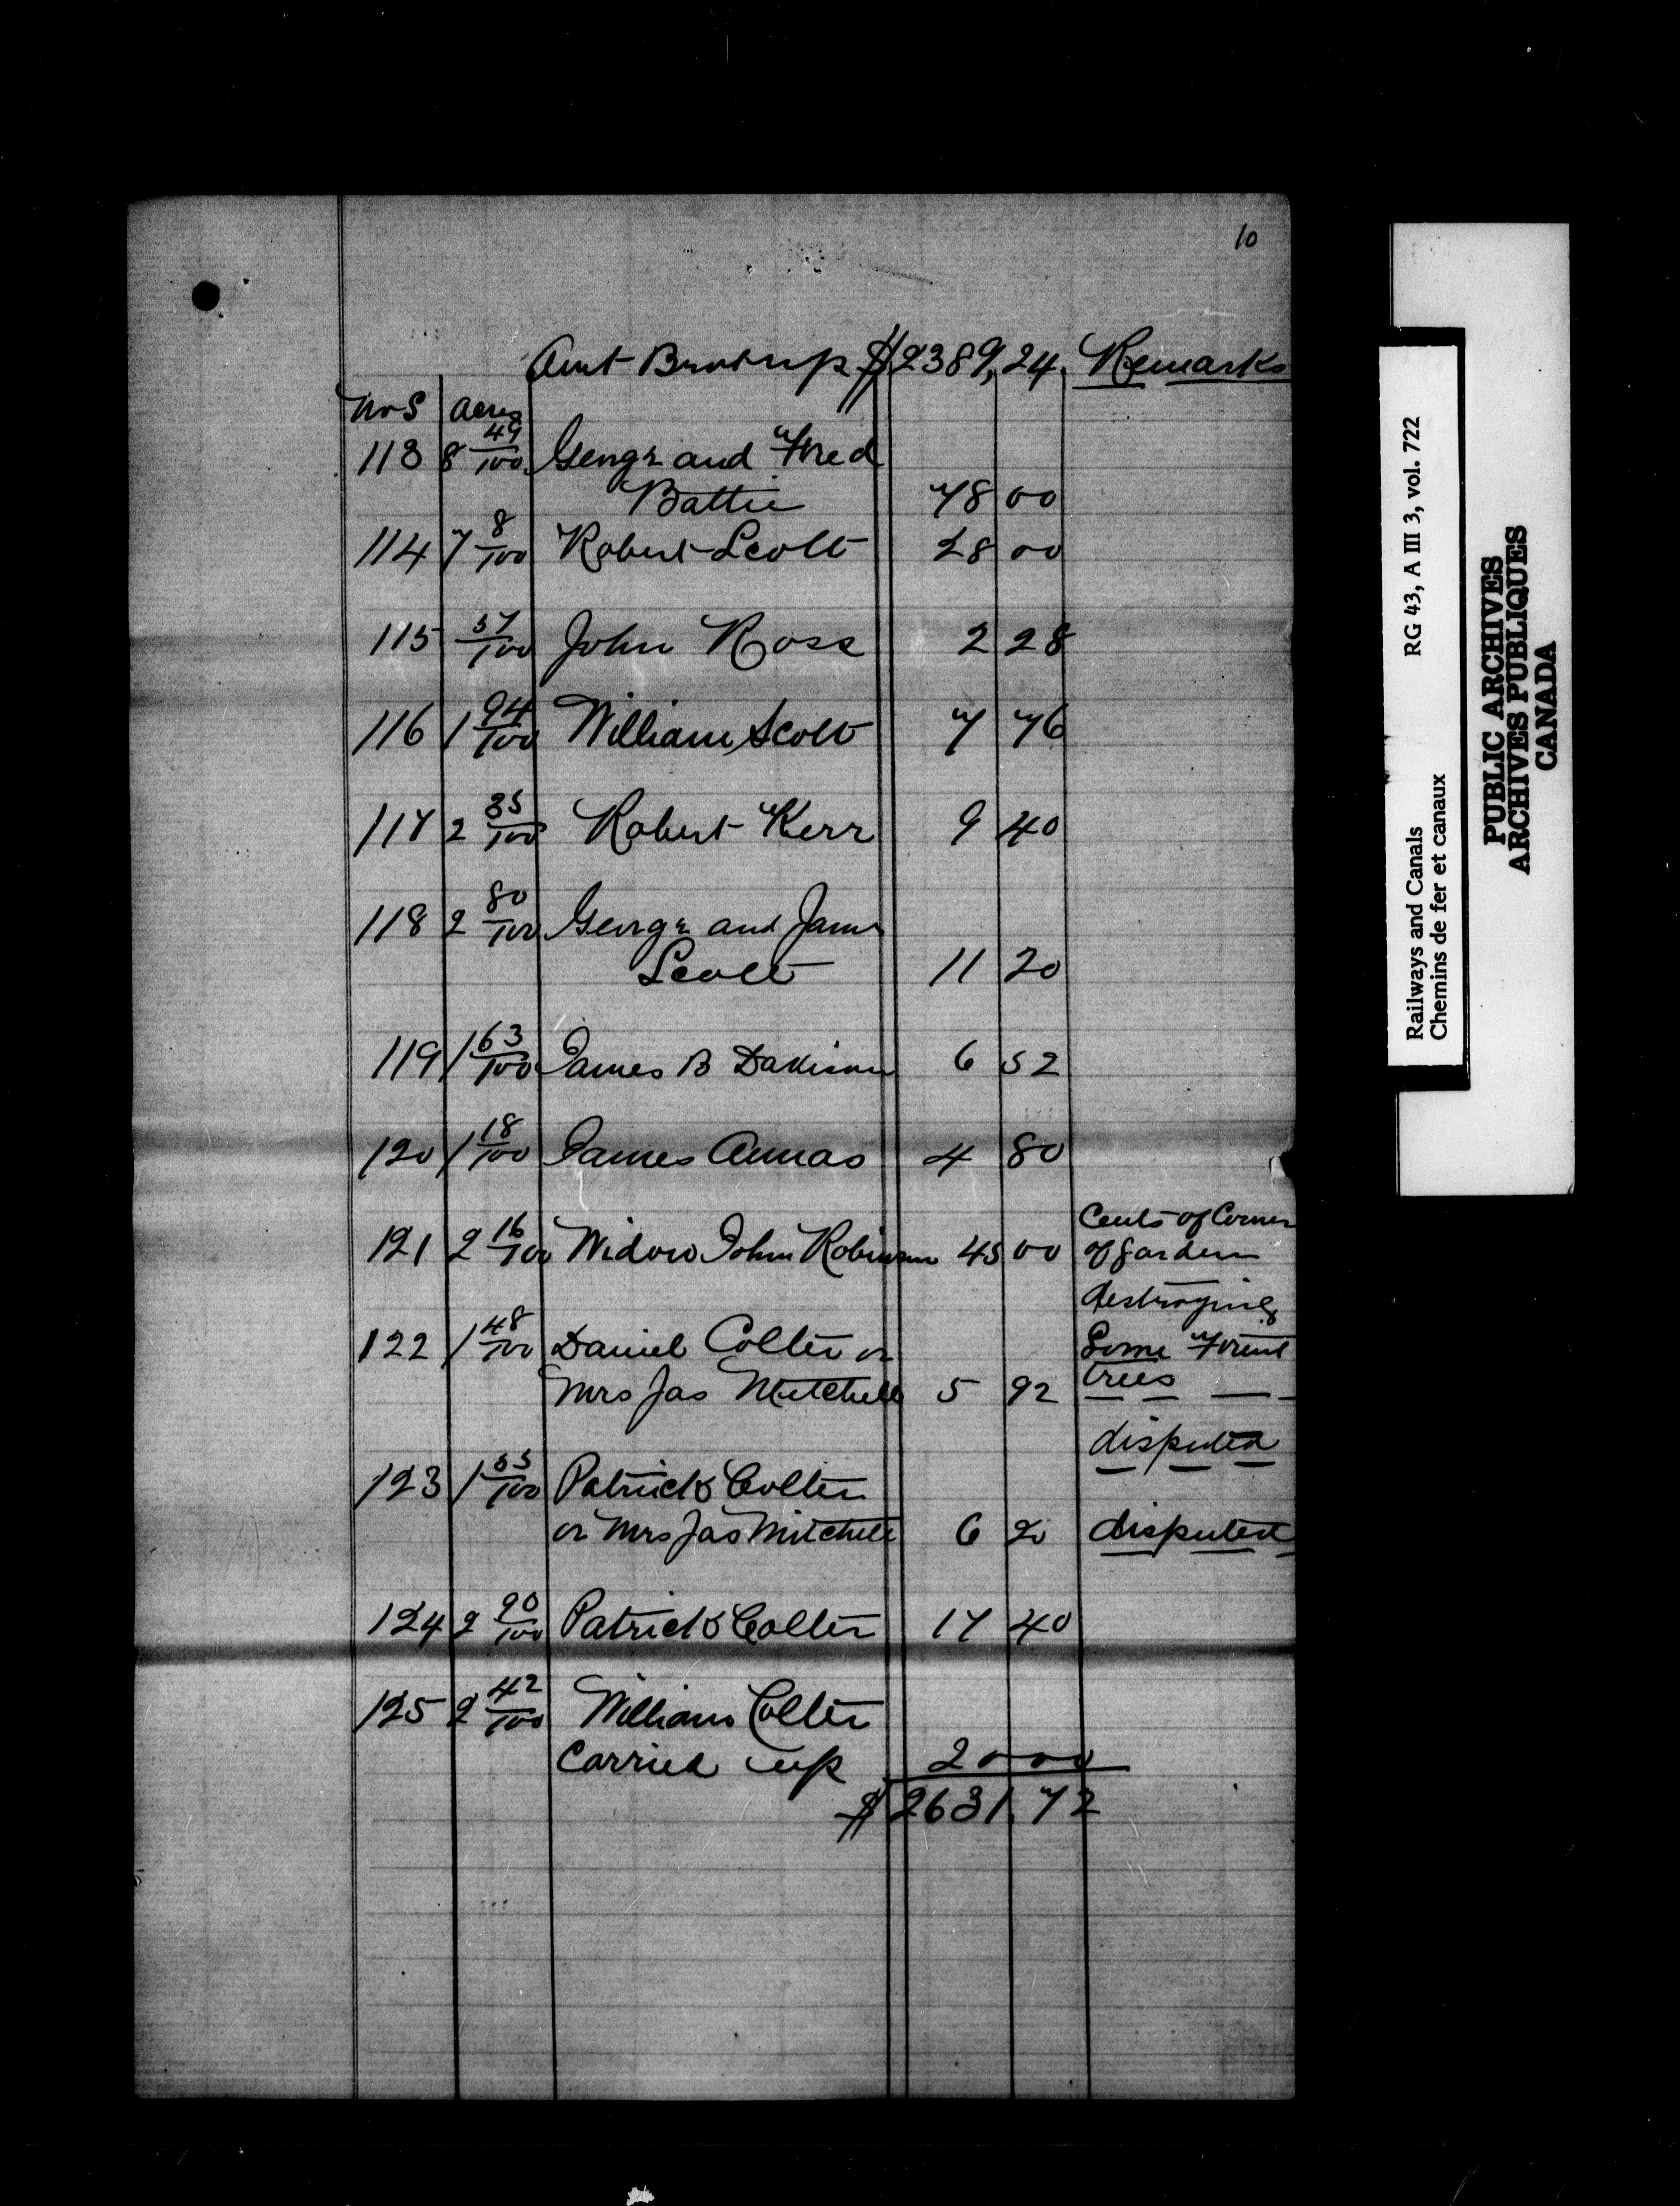 10
Amt Brot up $2389,24 Remarks
Nos Acres
113 8 49/100 George and Fred
Battie 78 00
114 7 8/100 Robert Scott 28 00
115 57/100 John Ross 2 28
116 1 94/100 William Scott 7 76
117 2 35/100 Robert Kerr 9 40
118 2 80/100 George and James
Scott 11 20
119 1 63/100 James B Davison 6 52
120 1 18/100 James Annas 4 80
Cents of Corner
121 2 16/100 Widow John Robinson 45 00 of garden
destroying
122 1 48/100 Daniel Colter or Some Fruit
Mrs Jas Mitchell 5 92 trees
disputed
123 1 55/100 Patrick Colter
or Mrs Jas Mitchell 6 20 disputed
124 2 90/100 Patrick Colter 17 40
125 2 42/100 William Colter
Carried up 20 00
$2631.72
Railways and Canals RG 43, A III 3, vol. 722
Chemins de fer et canaux
PUBLIC ARCHIVES
ARCHIVES PUBLIQUES
CANADA